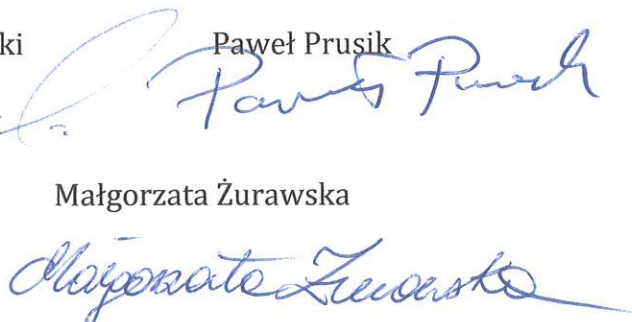 ki Paweł Prusik
Paweł Prusik
Małgorzata Żurawska
Małgorzata Żurawska